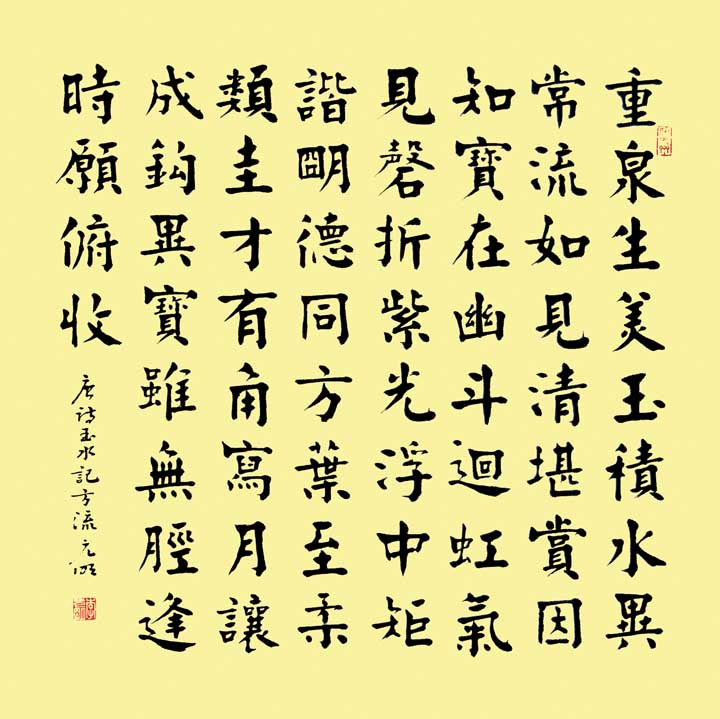 重泉生美玉積水異
常流如見清堪賞因
知寶在幽斗迴虹氣
見磬折紫光浮中矩
諧明德同方葉至柔
類圭才有角寫月讓
成鈎異寶雖無脛逢
時願俯收
唐詩玉水記方流元